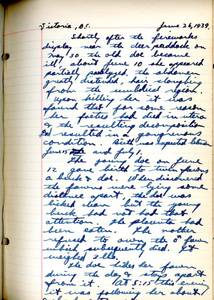 Victoria, B.C. June 26, 1939
Shortly after the fireworks
display near the deer paddock on
May 30 the old doe became
ill; about June 10 she appeared
partially paralyzed, the abdomen
greatly distended, hair sloughing
from the umbilical region.
Upon killing her it was
found that for some reason
her fœtus had died in utero
& the resulting decomposition
had resulted in a gangrenous
condition. Birth was expected between
June 15 and July 1.
The young doe on June
12 gave birth to twin fawns
When discovered
the fawns were lying some
distance apart, the doe was
licked clean but the young
buck had not had that
attention. The placenta had
been eaten. The mother
refused to own the ♂ fawn
which subsequently died. It
weighed 2 lbs.
The doe hides her fawn
during the day & stays apart
from it. At 5:15 this even.
it was following her about